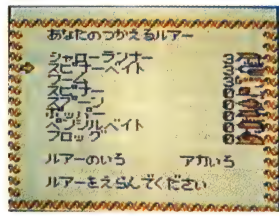 あなたのつかえるルアー
シャローランナー
スピナーベイト
ワーム
スピナー
スプーン
ポッパー
ペンシルベイト
フロッグ
ルアーのいろ アカいろ
ルアーをえらんでください